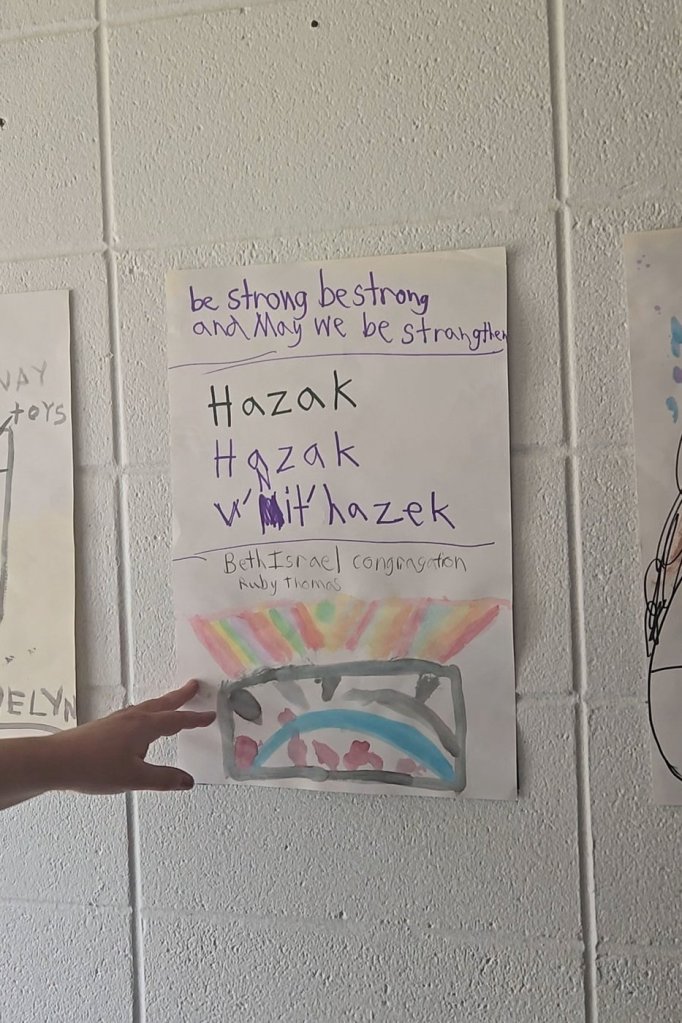 be strong be strong
and May we be strangthen
Hazak
Hazak
v' it' hazek
Beth Israel congragation
Ruby Thomas
toys